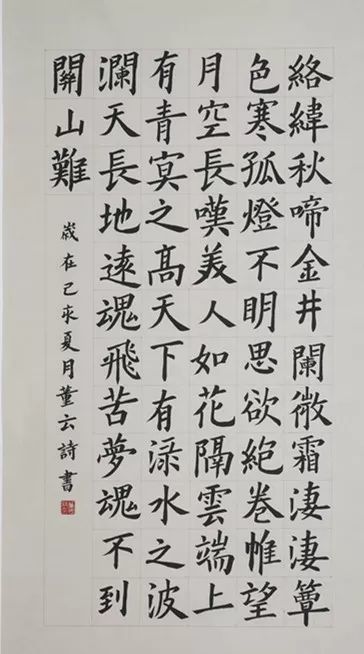 絡緯秋啼金井闌微霜淒淒簟
色寒孤燈不明思欲絕卷帷望
月空長嘆美人如花隔雲端上
有青冥之髙天下有渌水之波
瀾天長地遠魂飛苦夢魂不到
關山難
歲在己亥夏月董云詩書